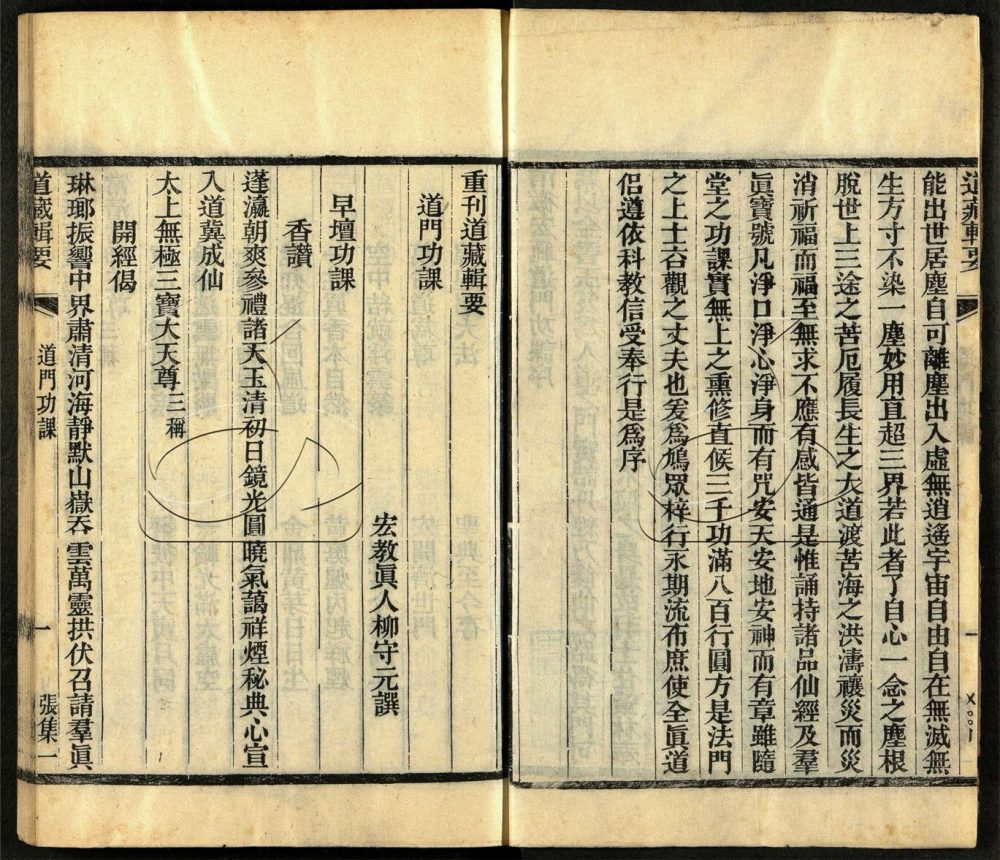 能出世居塵自可離塵出入虛無逍遙宇宙自由自在無滅無
生方寸不染一塵妙用直超三界若此者了自心一念之塵根
脫世上三途之苦厄履長生之大道渡苦海之洪濤禳災而災
消祈福而福至無求不應有感皆通是惟誦持諸品仙經及羣
眞寶號凡淨口淨心淨身而有咒安天安地安神而有章雖隨
堂之功課實無上之熏修直候三千功滿八百行圓方是法門
之上士合觀之丈夫也爰爲鳩眾梓行永期流布庶使全眞道
侶遵依科教信受奉行是爲序
道藏輯要
一
重刊道藏輯要
道門功課
宏教眞人柳守元譔
早壇功課
香讚
蓬瀛朝爽參禮諸天玉清初日鏡光圓曉氣藹祥煙秘典心宣
入道冀成仙
太上無極三寶大天尊三稱
開經偈
琳瑯振響中界肅清河海靜默山嶽吞雲萬靈拱伏召請羣眞
道藏輯要
道門功課
一
張集一